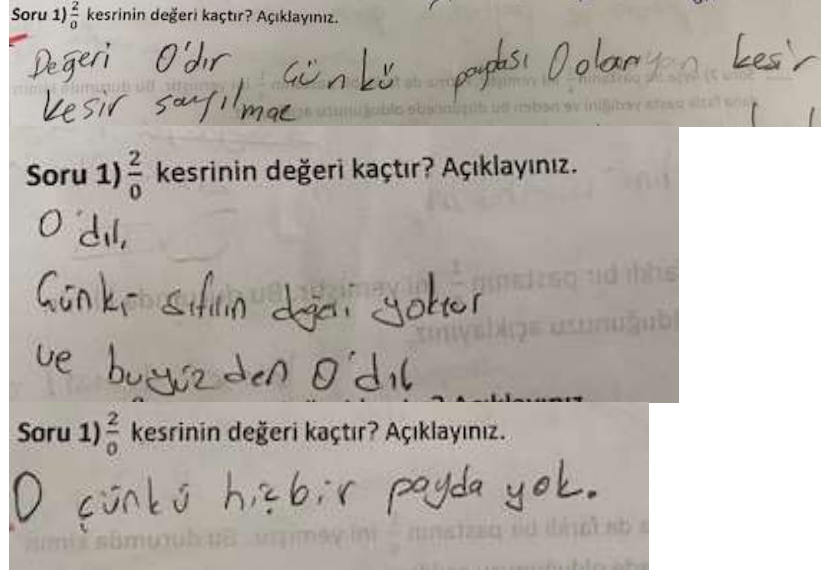 Soru 1) 2/0 kesrinin değeri kaçtır? Açıklayınız.
Değeri 0'dır Çünkü paydası 0 olan kesir
kesir sayılmaz
Soru 1) 2/0 kesrinin değeri kaçtır? Açıklayınız.
0'dır,
Çünki sıfırın değeri yoktur
ve buyüzden 0'dır
Soru 1) 2/0 kesrinin değeri kaçtır? Açıklayınız.
0 çünkü hiçbir payda yok.